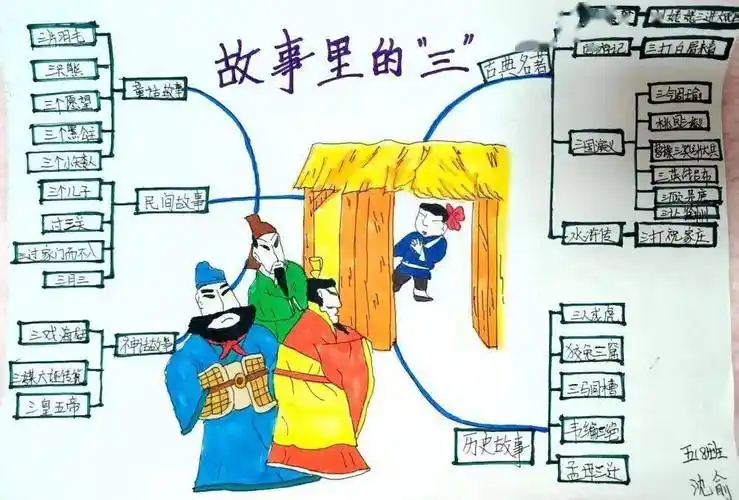 故事里的"三"
童话故事
三片羽毛
三只熊
三个愿望
三个黑公主
三个小矮人
民间故事
三个儿子
过三关
三过家门而不入
三月三
神话故事
三戏海妖
三皇五帝
古典名著
西游记
三打白骨精
三国演义
三气周瑜
三英战吕布
三顾茅庐
水浒传
三打祝家庄
历史故事
三人成虎
狡兔三窟
三马同槽
韦编三绝
孟母三迁
五18班
沈俞